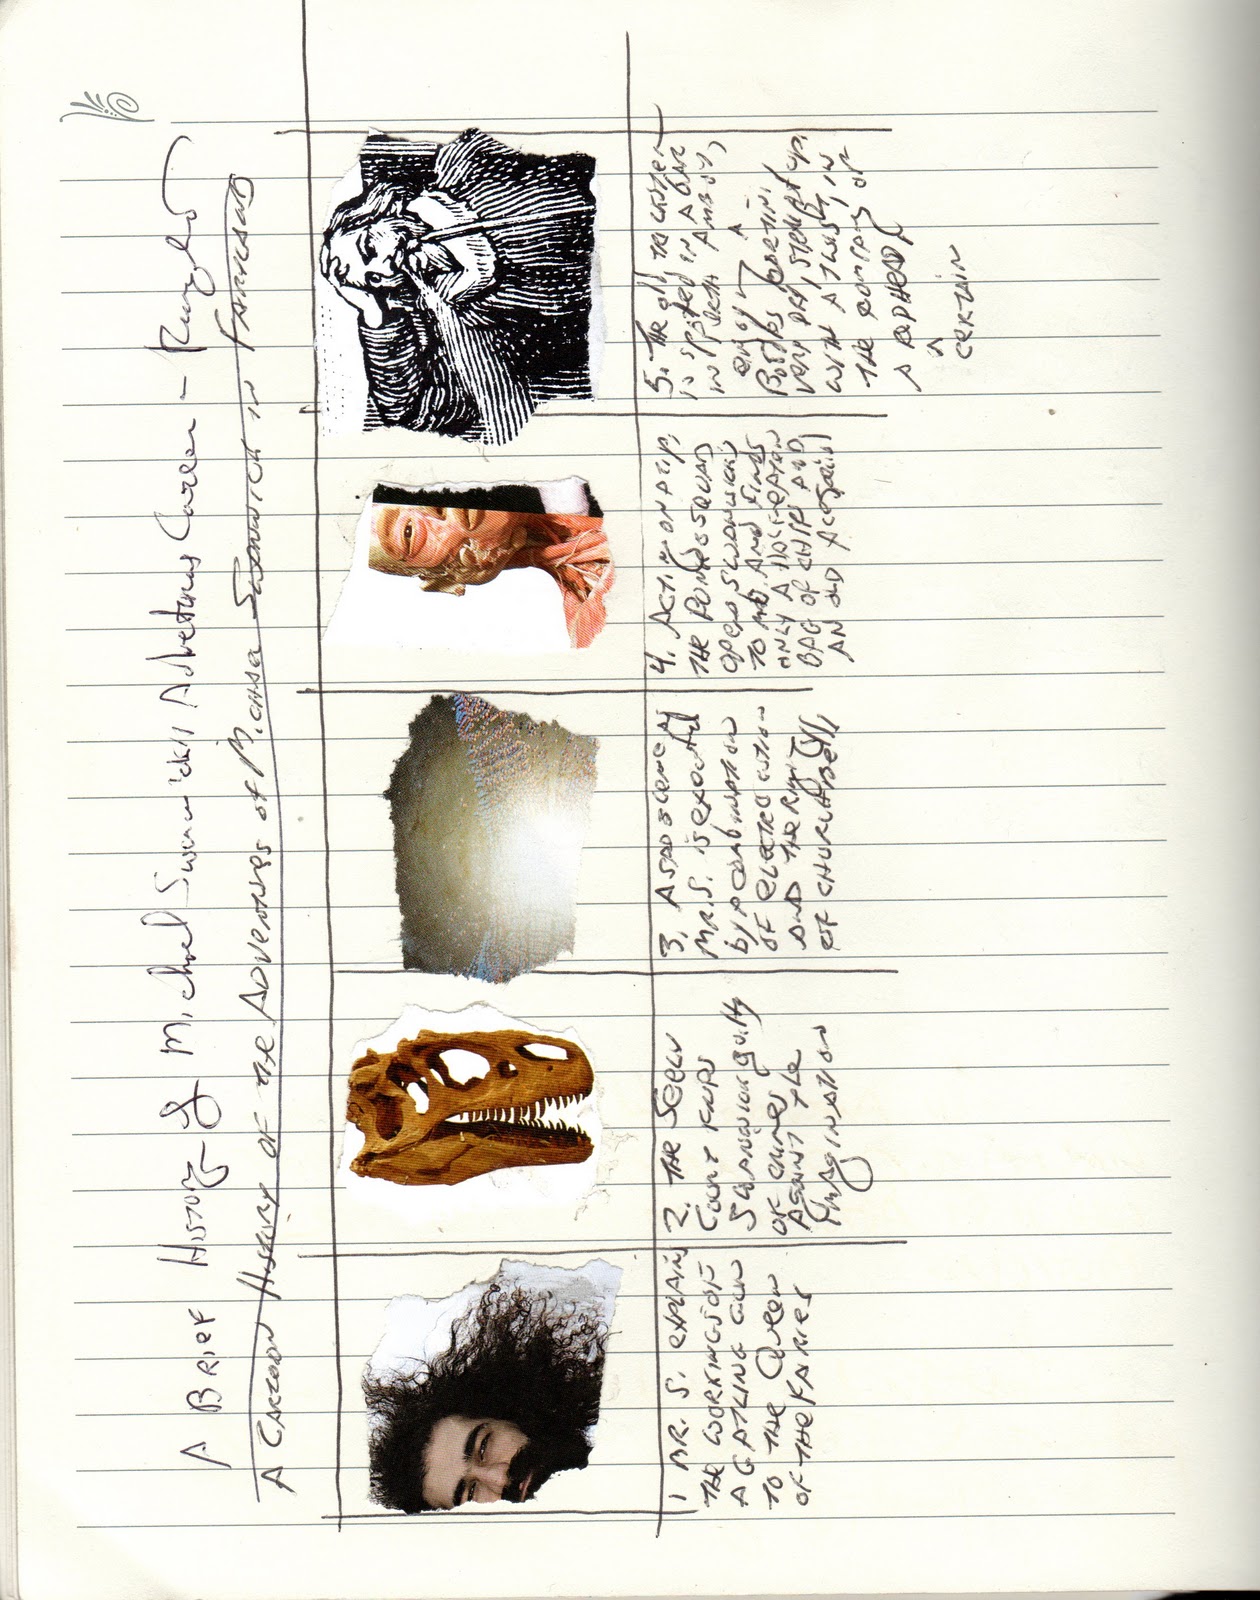 A BRIEF HISTORY of Michael Swanwick's Adventurous Career –
A CARTOON HISTORY OF THE ADVENTURES of
1 MR. S. EXPLAINS
THE WORKINGS OF
A GATLING GUN
TO THE QUEEN
OF THE FAIRIES
2. THE SEELIE
COURT FINDS
SWANWICK guilty
OF CRIMES
AGAINST THE
IMAGINATION
3. A SAD SCENE AS
MR. S. IS EXECUTED
by A COMBINATION
OF ELECTROCUTION
AND THE RINGING
OF CHURCH BELLS
4. ACTING ON A TIP,
THE BOMB SQUAD
OPENS SWANWICK'S
TOMB AND FINDS
ONLY A
BAG OF CHIPS AND
AN OLD
5. THE old TRICKSTER
IS SPOTTED IN A BAR
IN PERTH AMBOY,
enjoying A
MARTINI,
VERY DRY, STRAIGHT UP,
WITH A TWIST, IN
THE COMPANY OF
A
^
CERTAIN
REDHEAD